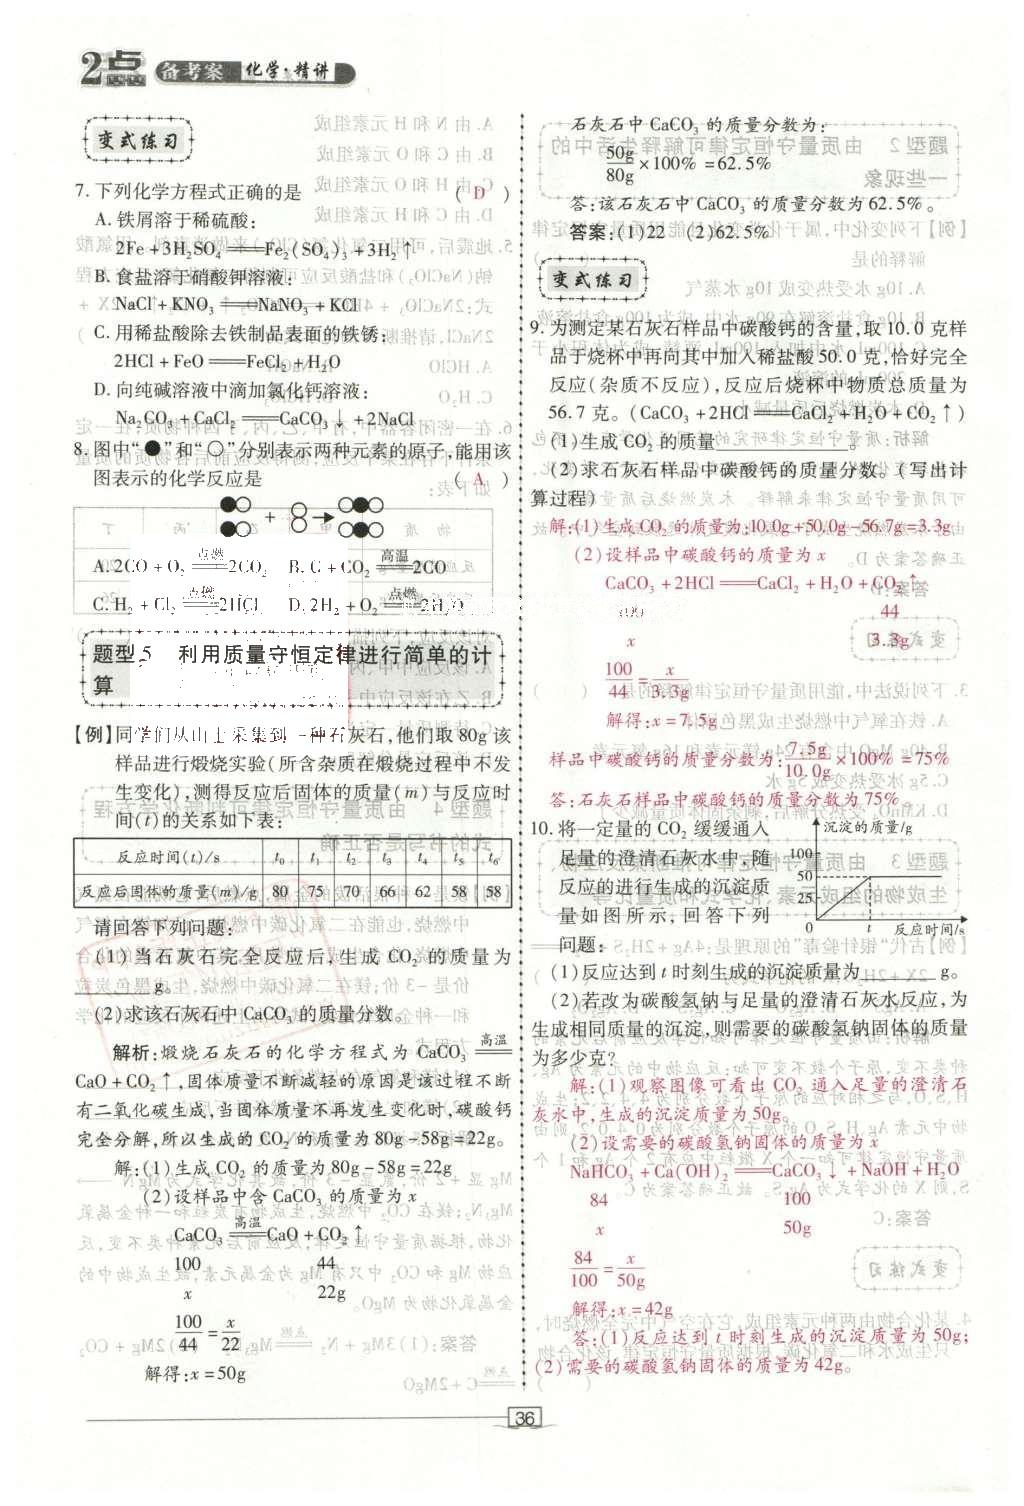 2点 备考案 化学·精讲
变式练习
7. 下列化学方程式正确的是 ( D )
A. 铁屑溶于稀硫酸:
2Fe + 3H₂SO₄══Fe₂(SO₄)₃ + 3H₂↑
B. 食盐溶于硝酸钾溶液:
NaCl + KNO₃══NaNO₃ + KCl
C. 用稀盐酸除去铁制品表面的铁锈:
2HCl + FeO══FeCl₂ + H₂O
D. 向纯碱溶液中滴加氯化钙溶液:
Na₂CO₃ + CaCl₂══CaCO₃↓ + 2NaCl
8. 图中“●”和“○”分别表示两种元素的原子,能用该
图表示的化学反应是 ( A )
+ →
A. 2CO + O₂ 点燃══ 2CO₂ B. C + CO₂ 高温══ 2CO
C. H₂ + Cl₂ 点燃══ 2HCl D. 2H₂ + O₂ 点燃══ 2H₂O
题型 5 利用质量守恒定律进行简单的计
算
【例】同学们从山上采集到一种石灰石,他们取80g该
样品进行煅烧实验(所含杂质在煅烧过程中不发
生变化),测得反应后固体的质量(m)与反应时
间(t)的关系如下表:
反应时间(t)/s t₀ t₁ t₂ t₃ t₄ t₅ t₆
反应后固体的质量(m)/g 80 75 70 66 62 58 58
请回答下列问题:
(1)当石灰石完全反应后,生成 CO₂ 的质量为
______g。
(2)求该石灰石中CaCO₃的质量分数。
解析:煅烧石灰石的化学方程式为 CaCO₃ 高温══
CaO + CO₂↑,固体质量不断减轻的原因是该过程不断
有二氧化碳生成,当固体质量不再发生变化时,碳酸钙
完全分解,所以生成的CO₂的质量为80g-58g=22g。
解:(1)生成CO₂ 的质量为80g-58g=22g
(2)设样品中含CaCO₃的质量为x
CaCO₃ 高温══ CaO + CO₂↑
100 44
x 22g
100/44 = x/22
解得:x=50g
石灰石中 CaCO₃ 的质量分数为:
50g/80g × 100% = 62.5%
答:该石灰石中CaCO₃ 的质量分数为62.5%。
答案:(1)22 (2)62.5%
变式练习
9. 为测定某石灰石样品中碳酸钙的含量,取10.0克样
品于烧杯中再向其中加入稀盐酸50.0克,恰好完全
反应(杂质不反应),反应后烧杯中物质总质量为
56.7克。(CaCO₃ + 2HCl══CaCl₂ + H₂O + CO₂↑)
(1)生成CO₂的质量____________。
(2)求石灰石样品中碳酸钙的质量分数。(写出计
算过程)
解:(1)生成CO₂的质量为:10.0g+50.0g-56.7g=3.3g
(2)设样品中碳酸钙的质量为x
CaCO₃ + 2HCl══CaCl₂ + H₂O + CO₂↑
100 44
x 3.3g
100/44 = x/3.3g
解得:x=7.5g
样品中碳酸钙的质量分数为:7.5g/10.0g × 100% = 75%
答:石灰石样品中碳酸钙的质量分数为75%。
10. 将一定量的CO₂ 缓缓通入
足量的澄清石灰水中,随
反应的进行生成的沉淀质
量如图所示,回答下列
问题:
沉淀的质量/g
100
50
25
0 t 反应时间/s
(1)反应达到t时刻生成的沉淀质量为________g。
(2)若改为碳酸氢钠与足量的澄清石灰水反应,为
生成相同质量的沉淀,则需要的碳酸氢钠固体的质量
为多少克?
解:(1)观察图像可看出CO₂ 通入足量的澄清石
灰水中,生成的沉淀质量为50g。
(2)设需要的碳酸氢钠固体的质量为x
NaHCO₃ + Ca(OH)₂══CaCO₃↓ + NaOH + H₂O
84 100
x 50g
84/100 = x/50g
解得:x=42g
答:(1)反应达到t时刻生成的沉淀质量为50g;
(2)需要的碳酸氢钠固体的质量为42g。
36